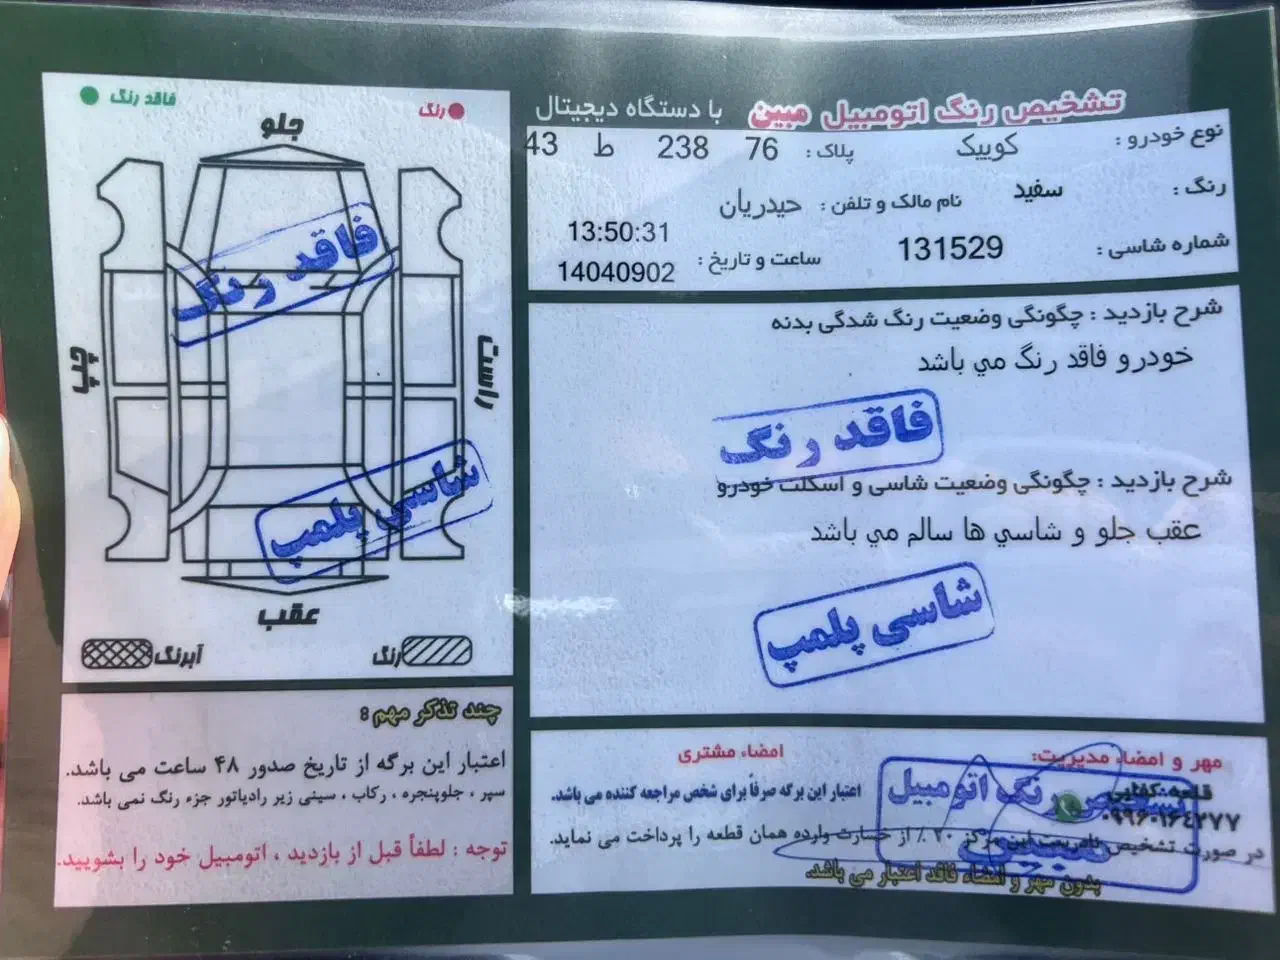 تشخیص رنگ اتومبیل مبین با دستگاه دیجیتال
نوع خودرو : کوییک پلاک : 76 238 ط 43
رنگ : سفید نام مالک و تلفن : حیدریان
شماره شاسی : 131529 ساعت و تاریخ : 13:50:31
14040902
شرح بازدید : چگونگی وضعیت رنگ شدگی بدنه
خودرو فاقد رنگ مي باشد
فاقد رنگ
شرح بازدید : چگونگی وضعیت شاسی و اسکلت خودرو
عقب جلو و شاسي ها سالم مي باشد
شاسی پلمپ
رنگ
فاقد رنگ
جلو
فاقد رنگ
راست
چپ
شاسی پلمپ
عقب
رنگ
آبرنگ
چند تذکر مهم :
اعتبار این برگه از تاریخ صدور ۴۸ ساعت می باشد.
سپر ، جلوپنجره ، رکاب ، سینی زیر رادیاتور جزء رنگ نمی باشد.
توجه : لطفاً قبل از بازدید ، اتومبیل خود را بشویید.
مهر و امضاء مدیریت:
امضاء مشتری
رنگ اتومبیل
اعتبار این برگه صرفاً برای شخص مراجعه کننده می باشد.
در صورت تشخیص نادرست این مرکز ۲۰ ٪ از خسارت وارده همان قطعه را پرداخت می نماید.
بدون مهر و امضاء فاقد اعتبار می باشد.